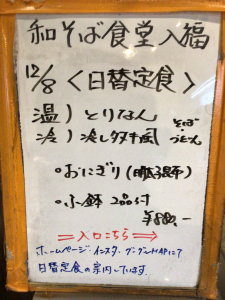 和そば食堂 入福
12/8 <日替定食>
温) とりなん
冷) 冷したぬき風 そば・うどん
・おにぎり(明太子)
・小鉢 2品付
¥880.-
⇒入口こちら⇒
ホームページ・インスタ・グーグルMAPにて
日替定食の案内しています。